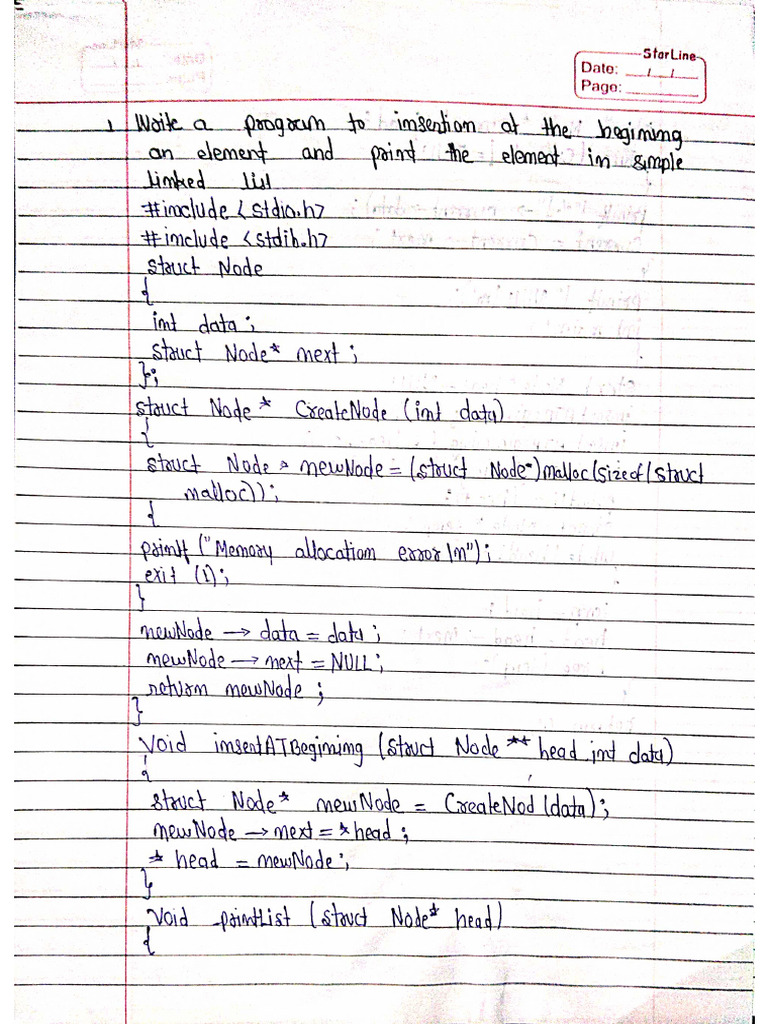 StarLine
Date: __/__/__
Page: ________
1 Write a program to insention at the begining
an element and print the element in simple
linked list
#include <stdio.h>
#include <stdih.h>
struct Node
{
int data;
struct Node* next;
};
struct Node * CreateNode (int data)
{
struct Node * newNode = (struct Node*)malloc(sizeof(struct
malloc));
{
printf ("Memory allocation error\n");
exit (1);
}
newNode → data = data;
newNode → next = NULL;
return newNode;
}
Void insentATBegining (struct Node ** head, int data)
{
struct Node* newNode = CreateNod (data);
newNode → next = *head;
* head = newNode;
}
Void printList (struct Node* head)
{